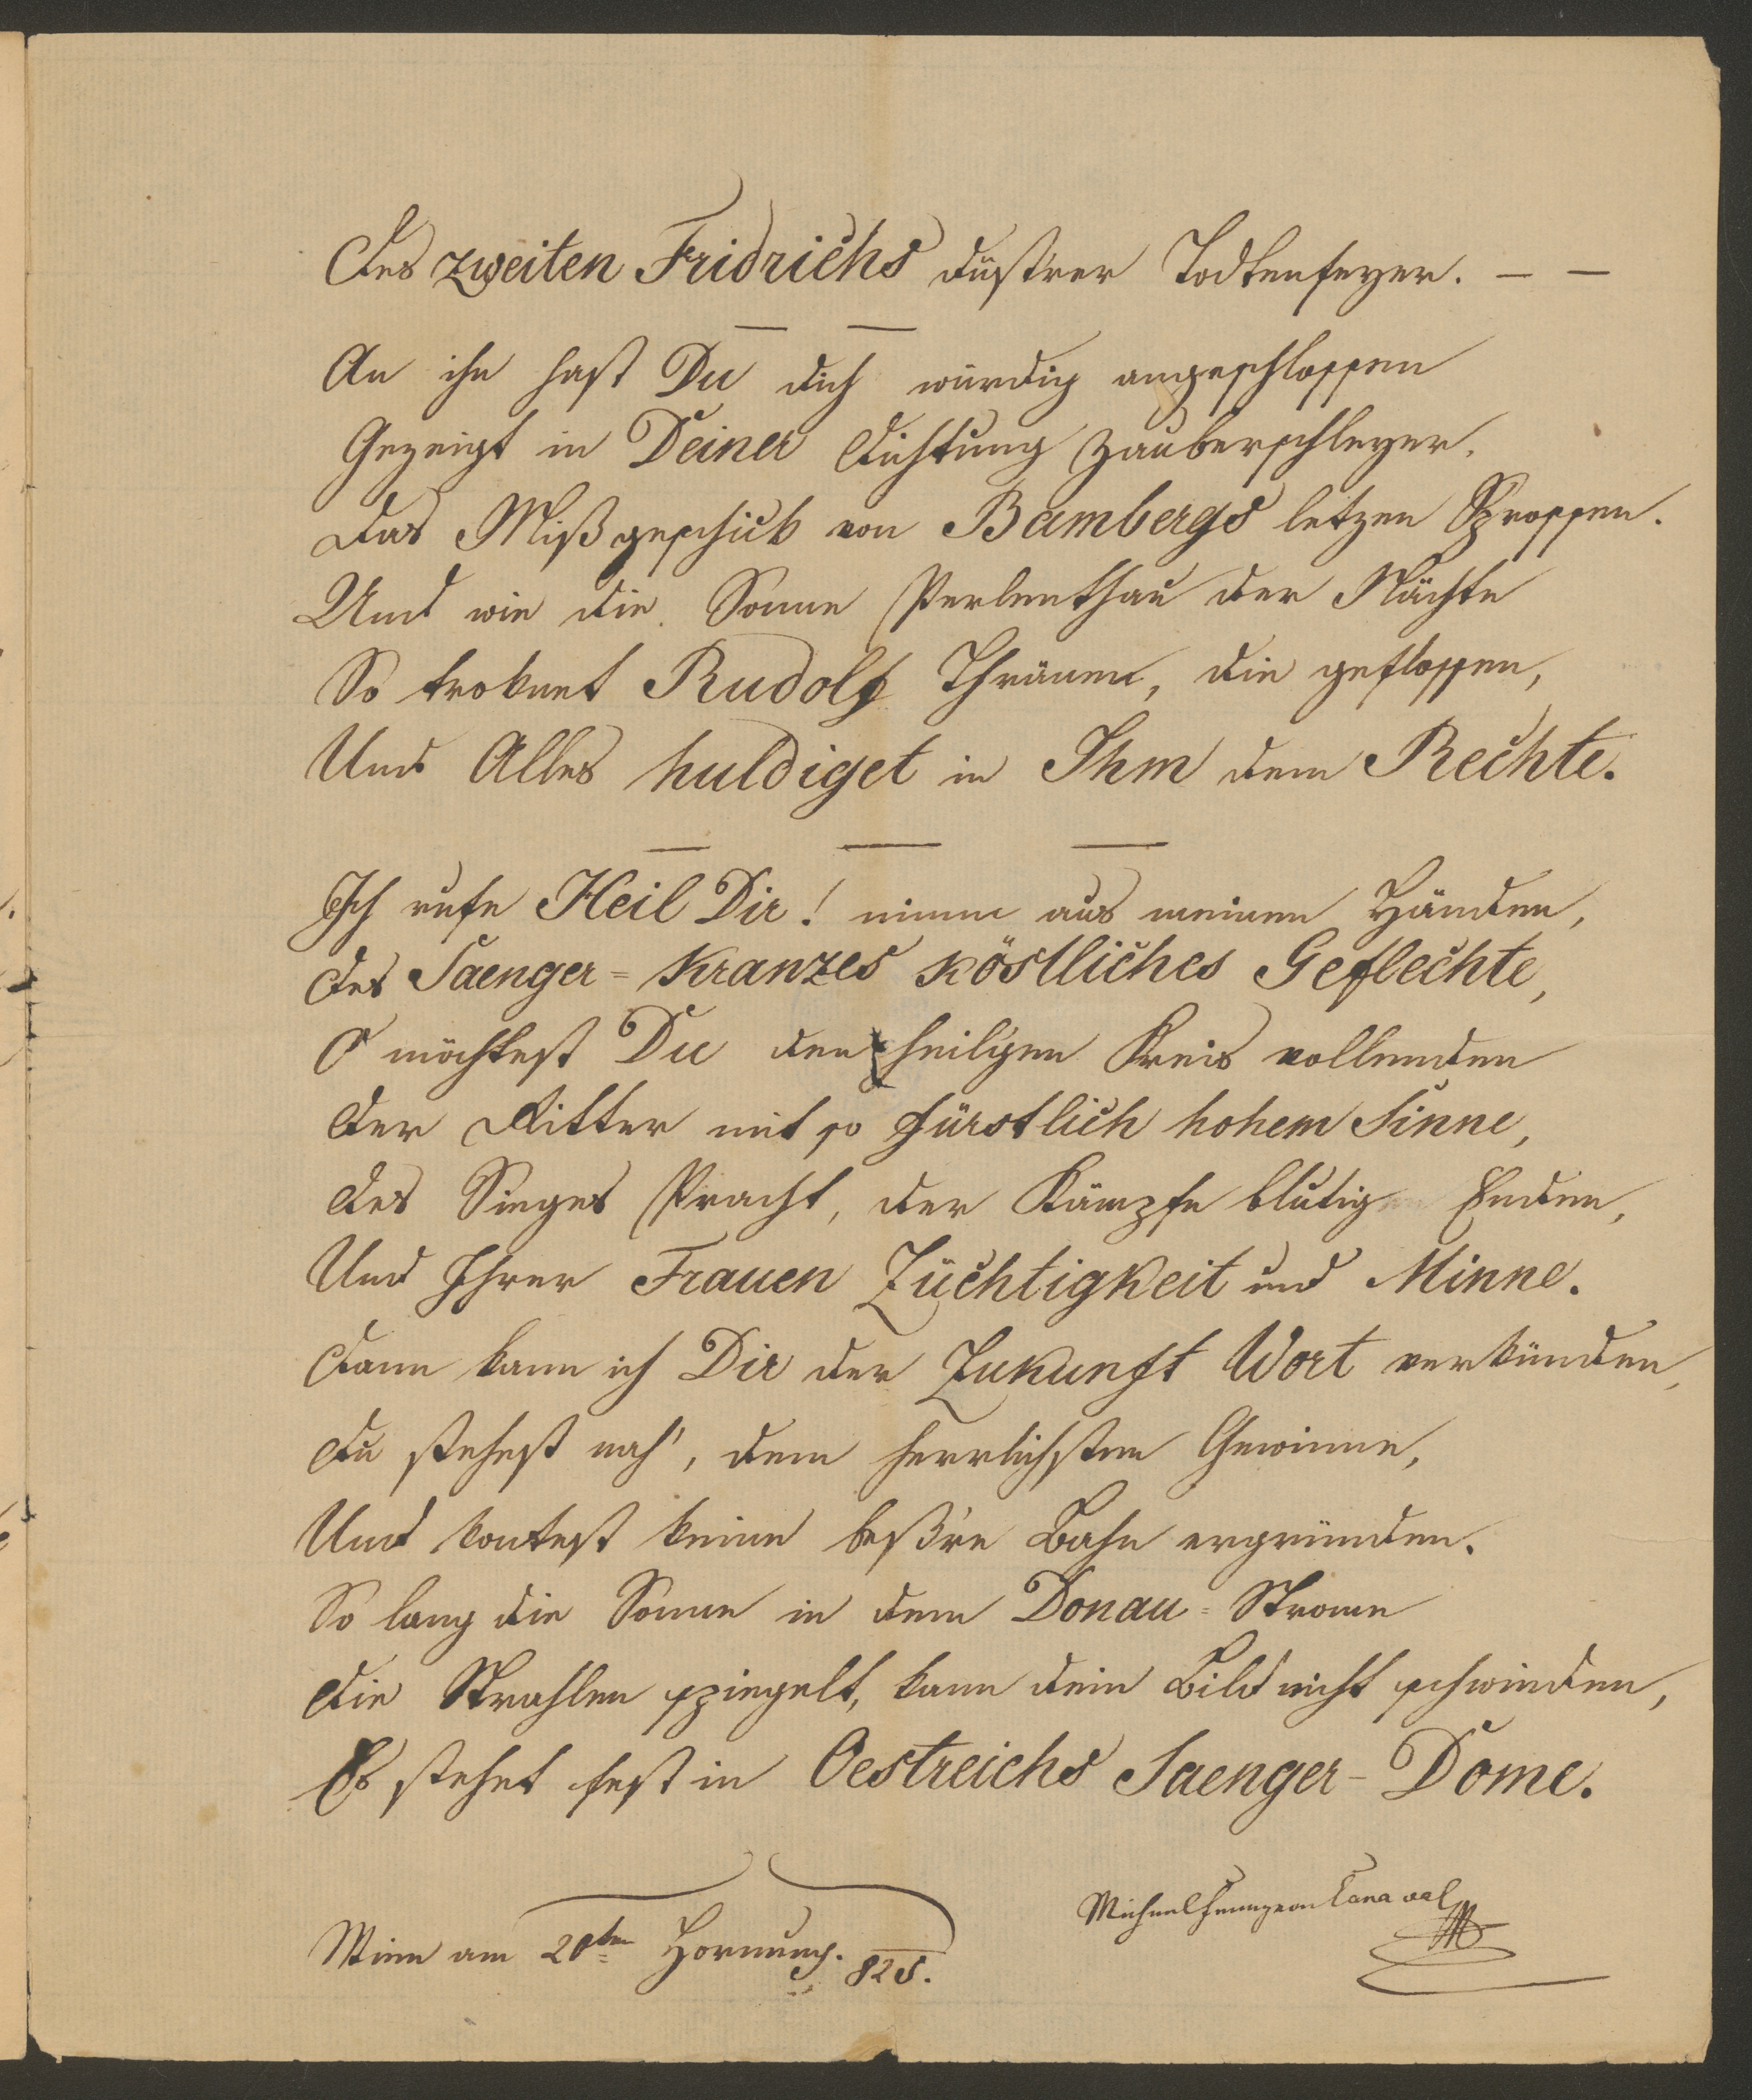 Des zweiten Fridrichs düst'rer Todtenfeyer. — —
An ihn hast Du dich würdig angeschlossen
Gezeigt in Deiner Dichtung Zauberschleyer.
Das Mißgeschick von Bambergs letzen Sprossen.
Und wie die Sonne Perlenthau der Nächte
So troknet Rudolf Thränen, die geflossen,
Und Alles huldiget in Ihm dem Rechte.
Ich rufe Heil Dir! nimm aus meinen Händen,
Des Saenger-Kranzes köstliches Geflechte,
O möchtest Du den heil'gen Kreis vollenden
Der Ritter mit so fürstlich hohem Sinne,
Des Sieges Pracht, der Kämpfe blutig Enden,
Und Ihrer Frauen Züchtigkeit und Minne.
Dann kann ich Dir der Zukunft Wort verkünden,
Du stehest nah', dem herrlichsten Gewinne,
Und kontest keine beß're Bahn ergründen.
So lang die Sonne in dem Donau-Strome
Die Strahlen spiegelt, kann dein Bild nicht schwinden,
Es stehet fest in Oestreichs Saenger-Dome.
Wien am 20ten Hornung. 825.
Michael von Canaval